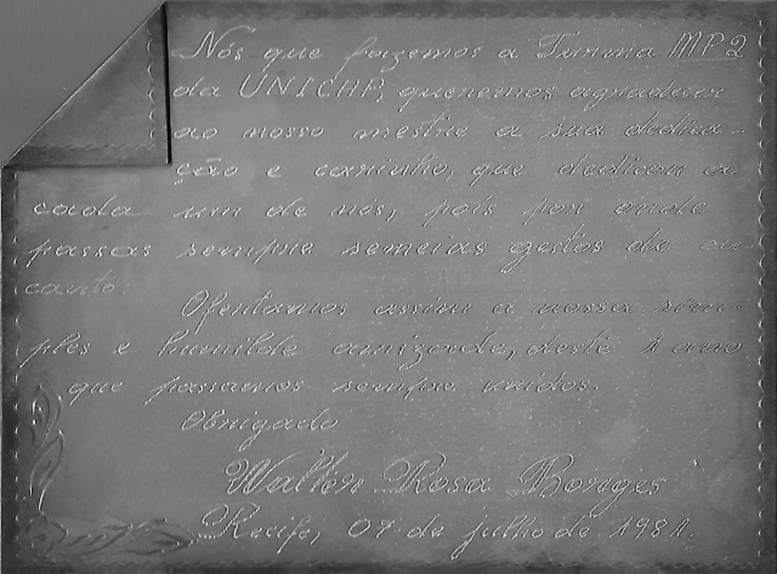 Nós que fazemos a Turma MP2
da UNICAP, queremos agradecer
ao nosso mestre a sua dedica-
ção e carinho, que dedicou a
cada um de nós, pois por onde
passas sempre semeias gestos de en-
canto.
Ofertamos assim a nossa sim-
ples e humilde amizade, deste 1 ano
que passamos sempre unidos.
Obrigado
Walter Rosa Borges
Recife, 07 de julho de 1981.